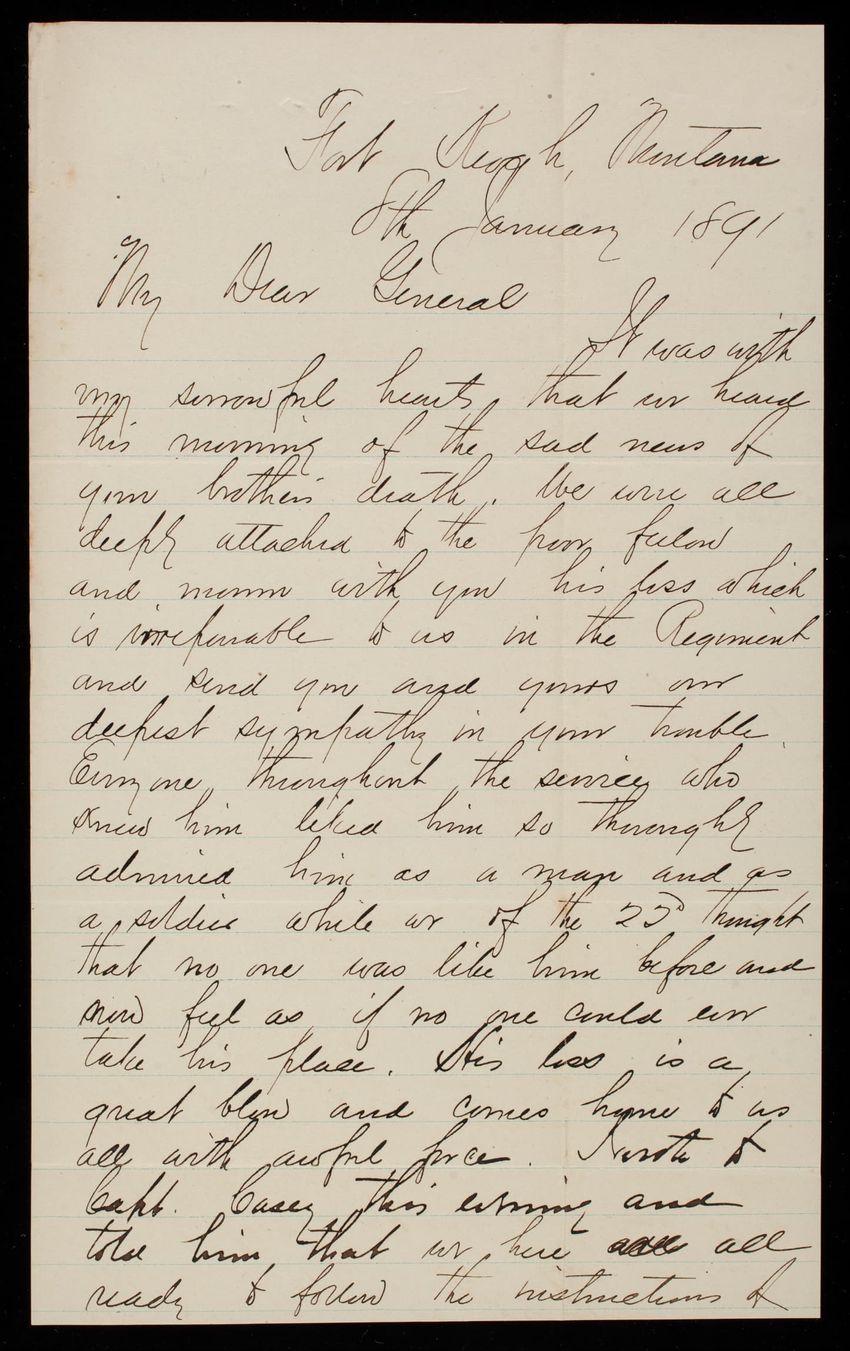 Fort Keogh, Montana
8th January 1891
My Dear General
It was with
very sorrowful hearts that we heard
this morning of the sad news of
your brothers death. We were all
deeply attached to the poor fellow
and mourn with you his loss which
is irreparable to us in the Regiment
and send you and yours our
deepest sympathy in your trouble.
Everyone throughout the service who
knew him liked him so thoroughly
admired him as a man and as
a soldier while we of the 22D thought
that no one was like him before and
now feel as if no one could ever
take his place. His loss is a
great blow and comes home to us
all with awful force. I wrote to
Capt. Casey this evening and
told him that we here all
ready to follow the instructions of